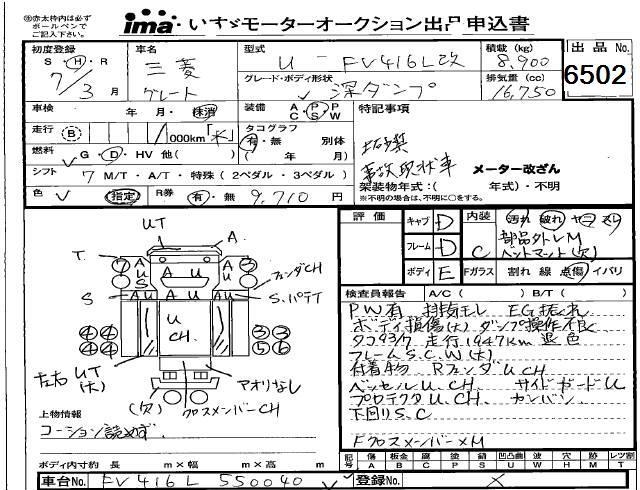 ㊟赤太枠内は必ず
ボールペンで
ご記入下さい。
ima いすゞモーターオークション出品申込書
初度登録 車名 型式 積載(kg) 出品No.
S・H・R 三菱 U-FV416L改 8,900 6502
7/3月 グレート グレード・ボディ形状 排気量(cc)
深ダンプ 16,750
車検 年・月・抹消 装備 A・P・P C S W 特記事項
走行 B 000km「 タコグラフ 有・無 別体
燃料 G・D・HV 他( ) ( 年 月) 事故現状車 メーター改ざん
シフト 7 M/T・A/T・特殊(2ペダル・3ペダル) 架装物年式:( 年式)・不明
※不明の場合は、不明に○をする。
色 指定 R券 有・無 9,710円
評価 キャブ D 内装 汚れ 破れ ヤコゲ スレ
フレーム D C 部品外レM
ベットマット(欠)
ボディ E Fガラス 割れ 線 点傷 イバリ
UT A
T A A 3 フェンダCH
7 U U
S S
S AU AU S.パテイ
U
CH.
4 4 3 3
4 4 5 6
左右UT
(大)
アオリなし
(欠) クロスメンバーCH
検査員報告 A/C( ) B/T( )
PW有 排抜モレ EG振れ
ボディ損傷(大) ダンプ操作不良
タコ93/7 走行1947km 退色
フレームS.C.W(大)
付着物 RフェンダUCH
ベッセルU.CH. サイドガードU
プロテクタU.CH. カンバン
下回りS.C
FクロスメンバーXM
上物情報
コーション読めず。
ボディ内寸約 長 m×幅 m×高 m
記号 傷A 板金B 腐C 塗P 錆S 凹凸曲U 波W 穴H 跡M 欠T レツ割
車台No. FV416L 550040 登録No. ×